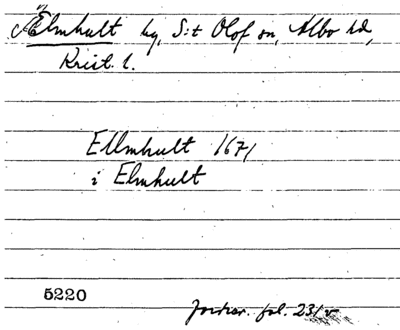 Älmhult by, S:t Olof sn, Albo hd,
Krist. l.
Ellmhult 1671
i Elmhult
5220
Jordrev. fol. 231 v